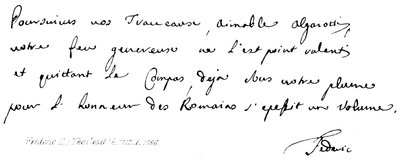 Poursuives nos Traveaux, aimable algarotti,
votre feu genereux ne s'est point valenti
et quittant le Compas, deja sous votre plume
pour l'honneur des Romains s'epessit un volume.
Federic